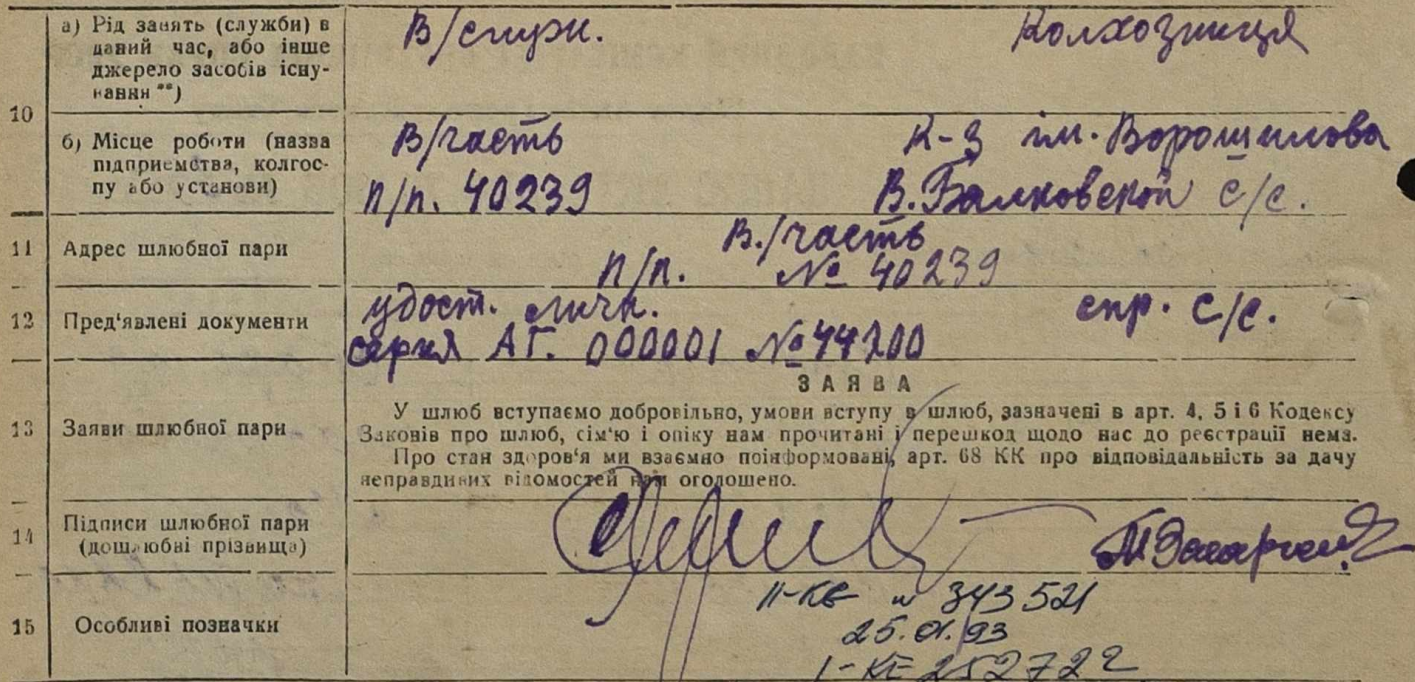 10
а) Рід занять (служби) в
даний час, або інше
джерело засобів існу-
вання **)
В/служ.
Колхозница
б) Місце роботи (назва
підприємства, колгос-
пу або установи)
В/часть
п/п. 40239
К-з им. Ворошилова
В. Балковской с/с.
11
Адрес шлюбної пари
В./часть
п/п. № 40239
12
Пред'явлені документи
удост. личн.
серия АГ. 000001 № 44200
спр. с/с.
13
Заяви шлюбної пари
ЗАЯВА
У шлюб вступаємо добровільно, умови вступу в шлюб, зазначені в арт. 4, 5 і 6 Кодексу
Законів про шлюб, сім'ю і опіку нам прочитані і перешкод щодо нас до реєстрації нема.
Про стан здоров'я ми взаємно поінформовані, арт. 68 КК про відповідальність за дачу
неправдивих відомостей нам оголошено.
14
Підписи шлюбної пари
(дошлюбні прізвища)
15
Особливі позначки
343521
25.01.93
252722